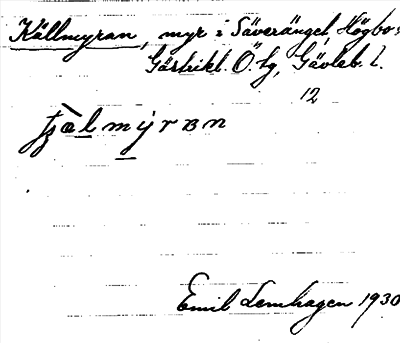 Källmyran, myr i Säveränget, Högbo s:
Gästrikl. Ö. tg, Gävleb. l.
12
Emil Lernhagen 1930